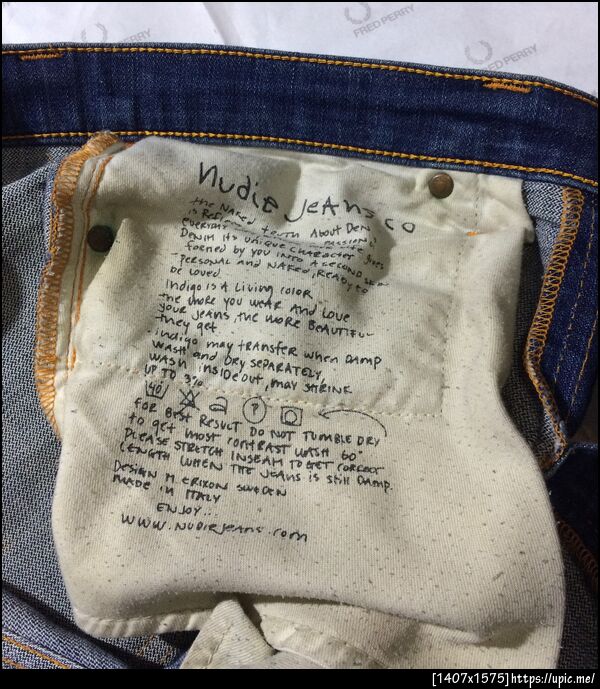 FRED PERRY
FRED PERRY
nudie JeAns co
the NAked truth About Den
is Refl
everyday PASSION
Denim its unique CHARACTER gives
formed by you into A second skin
Personal and NAked, Ready to
be loved.
Indigo is A living color
the more you wear and love
your jeans the more beautiful
they get
indigo may transfer when damp
wash and dry separately,
wash insideout, may shrink
up to 3%.
40 a ?
for best result do not tumble dry
to get most contrast wash 60°
please stretch inseam to get correct
length when the jeans is still damp.
Design M. Erixon Sweden
made in Italy
enjoy...
www.nudiejeans.com
[1407x1575]https://upic.me/